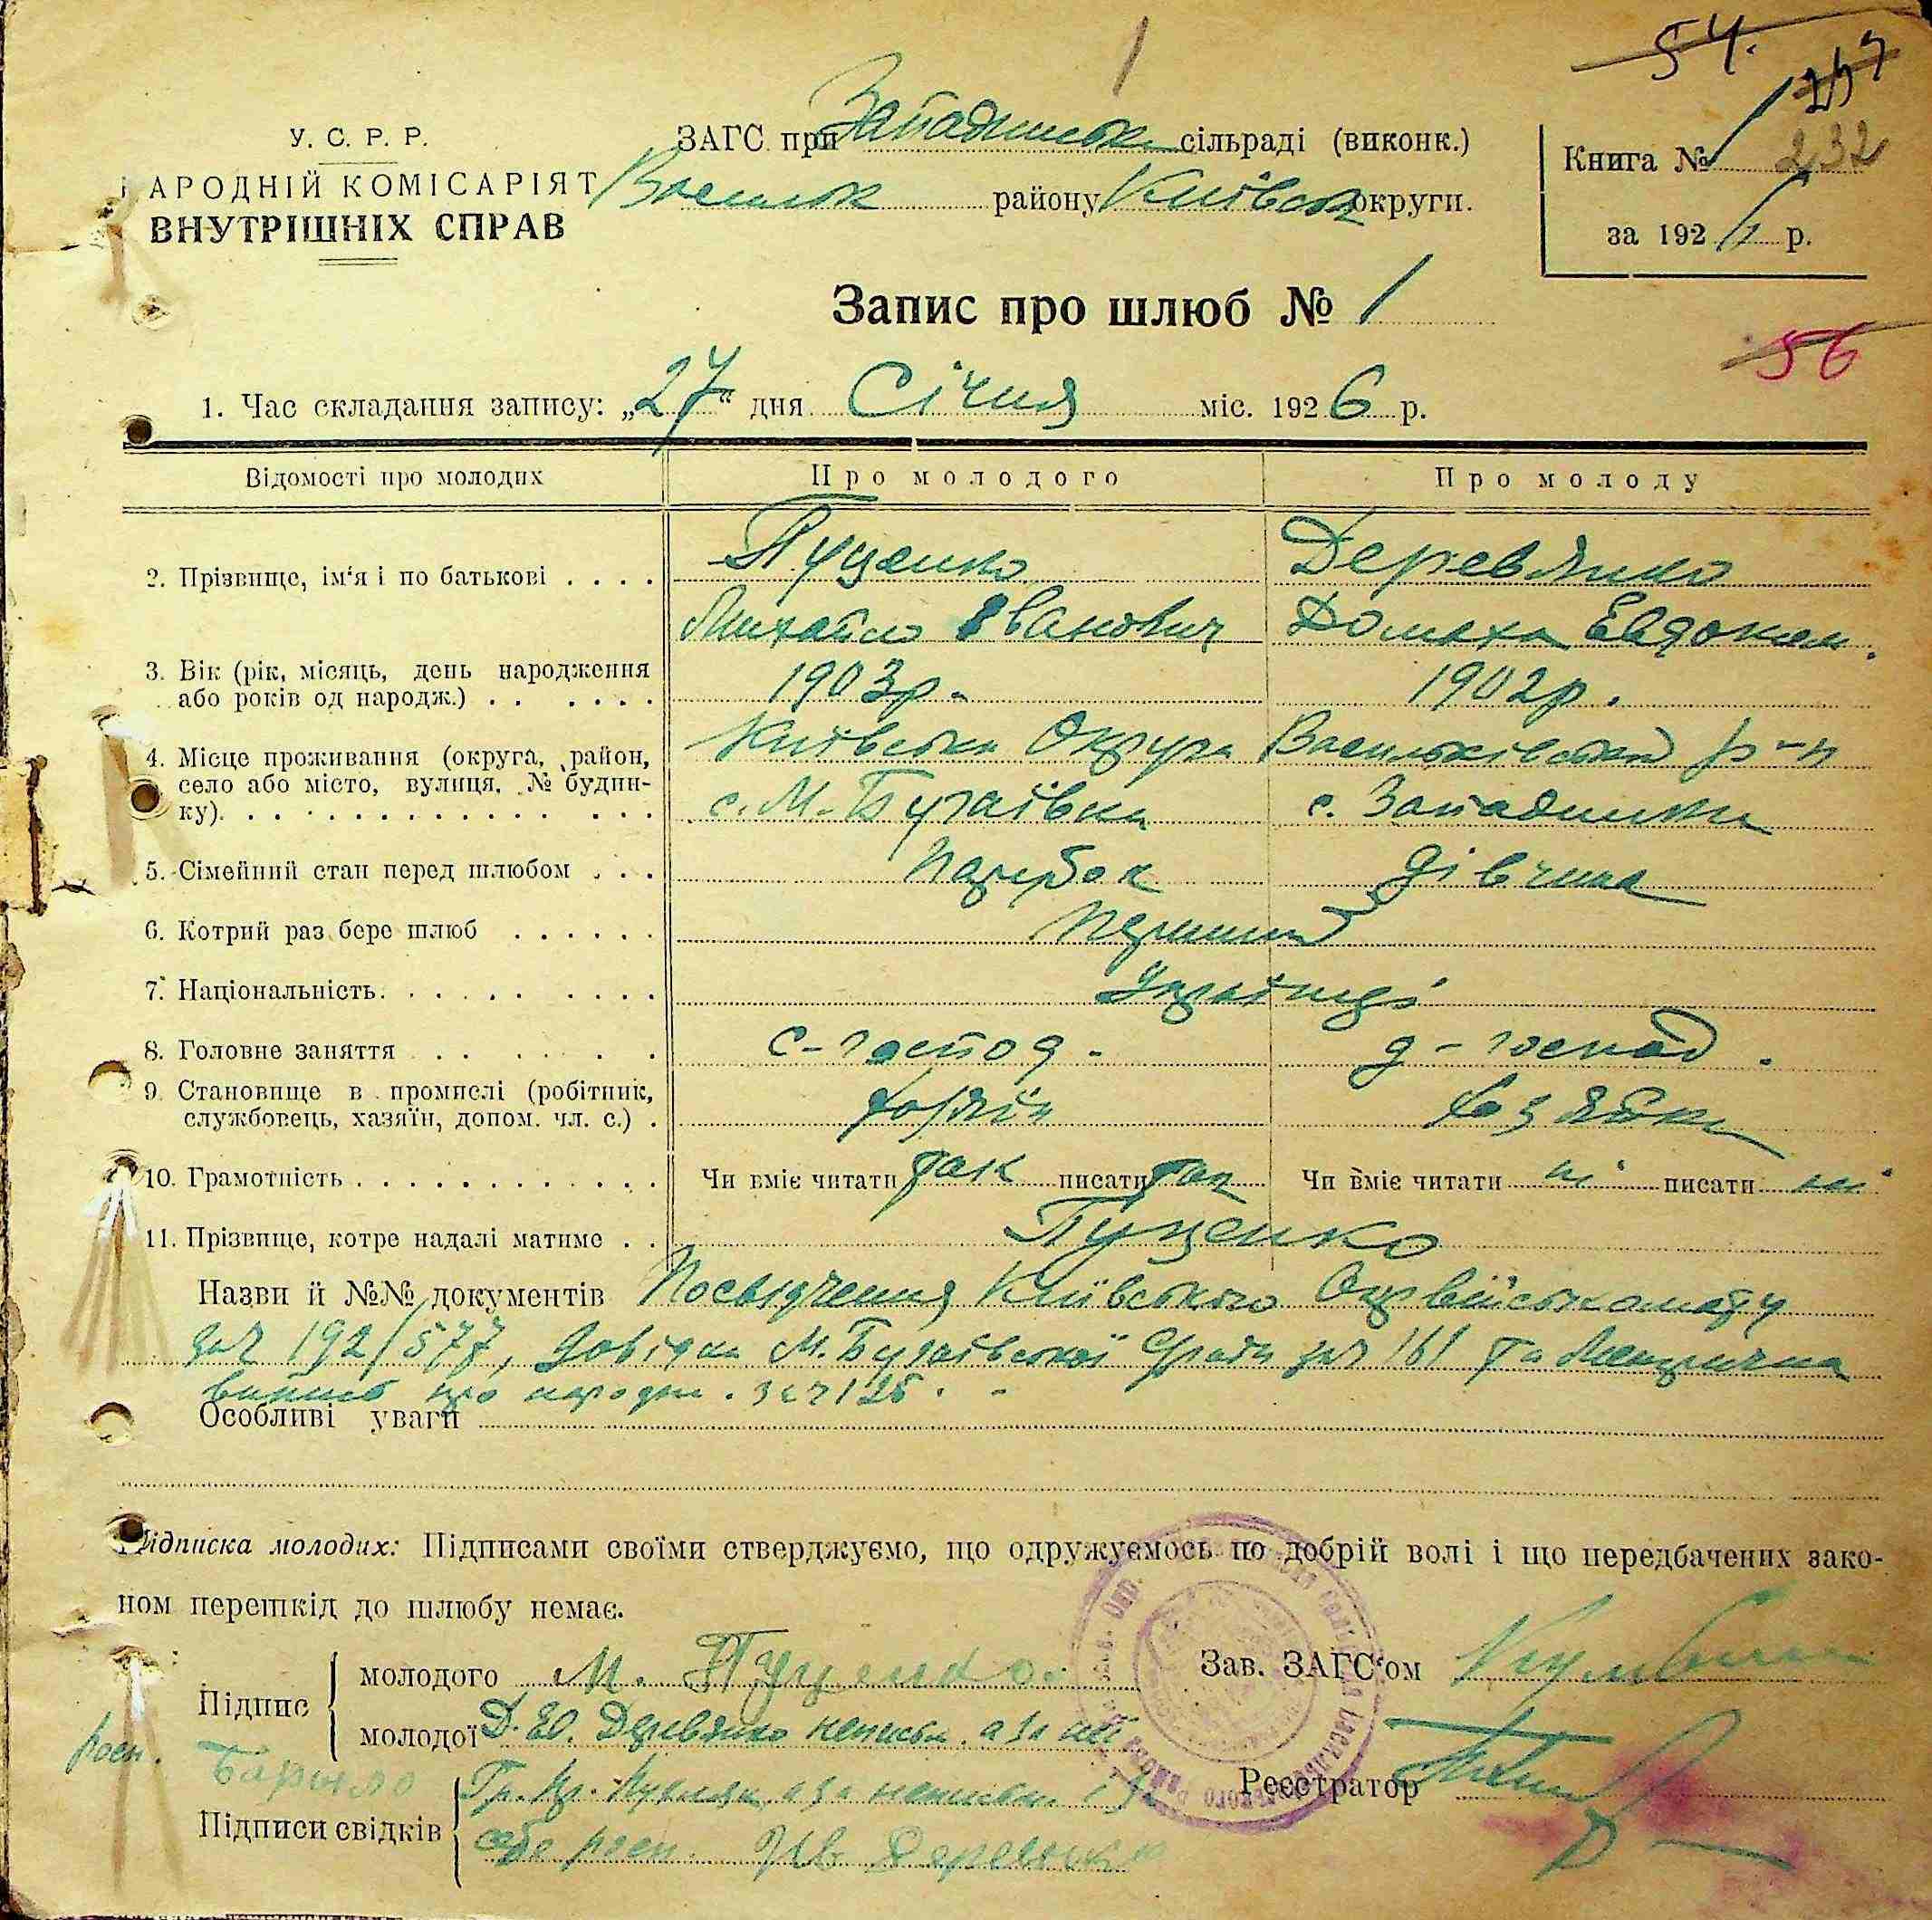 54.
257
У. С. Р. Р.
НАРОДНІЙ КОМІСАРІЯТ
ВНУТРІШНІХ СПРАВ
ЗАГС при Западинськ сільраді (виконк.)
Васильк району Київськ округи.
Книга № 1 232
за 192 р.
Запис про шлюб № 1
56
1. Час складання запису: „27“ дня Січня міс. 1926 р.
Відомості про молодих Про молодого Про молоду
2. Прізвище, ім'я і по батькові . . . . Пуценко Деревянко
Михайло Іванович Домаха Евдоким.
3. Вік (рік, місяць, день народження
або років од народж.) . . . . . . 1903р. 1902р.
Київська Округа Васильківський р-н
4. Місце проживання (округа, район,
село або місто, вулиця, № будин-
ку). . . . . . . . . . . . . . . с. М-Бугаївка с. Западинка
5. Сімейний стан перед шлюбом . . . парубок дівчина
6. Котрий раз бере шлюб . . . . . . перший
7. Національність. . . . . . . . . . Українці
8. Головне заняття . . . . . . с-господ. д-господ.
9. Становище в промислі (робітник,
службовець, хазяїн, допом. чл. с.) . хазяїн хазяйка
10. Грамотність . . . . . . . . . . . . . Чи вміє читати так писати так Чи вміє читати ні писати ні
11. Прізвище, котре надалі матиме . . Пуценко
Назви й №№ документів Посвідчення Київського Окрвійськомату
за № 192/577, довідка М. Бугаївської С/ради за № 161 та Метрична
випись про народж. за № 125.
Особливі уваги
Підписка молодих: Підписами своїми стверджуємо, що одружуємось по добрій волі і що передбачених зако-
ном перешкід до шлюбу немає.
Підпис
молодого М. Пуценко
молодої Д. Ев. Деревянко неписьм. а за неї
росп. Барило
Зав. ЗАГС'ом
Реєстратор
Підписи свідків
Гр. а за неписьм. і за
себе росп. Ів. Деревянко